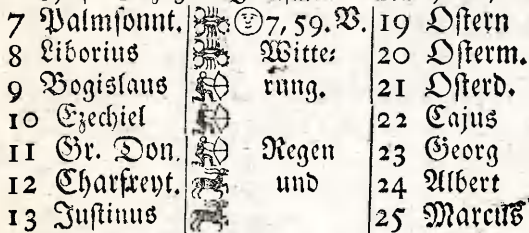 7 Palmſonnt. 7, 59. V. 19 Oſtern
8 Liborius Witte: 20 Oſterm.
9 Bogislaus rung. 21 Oſterd.
10 Ezechiel 22 Cajus
11 Gr. Don. Regen 23 Georg
12 Charfreyt. und 24 Albert
13 Juſtinus 25 Marcus